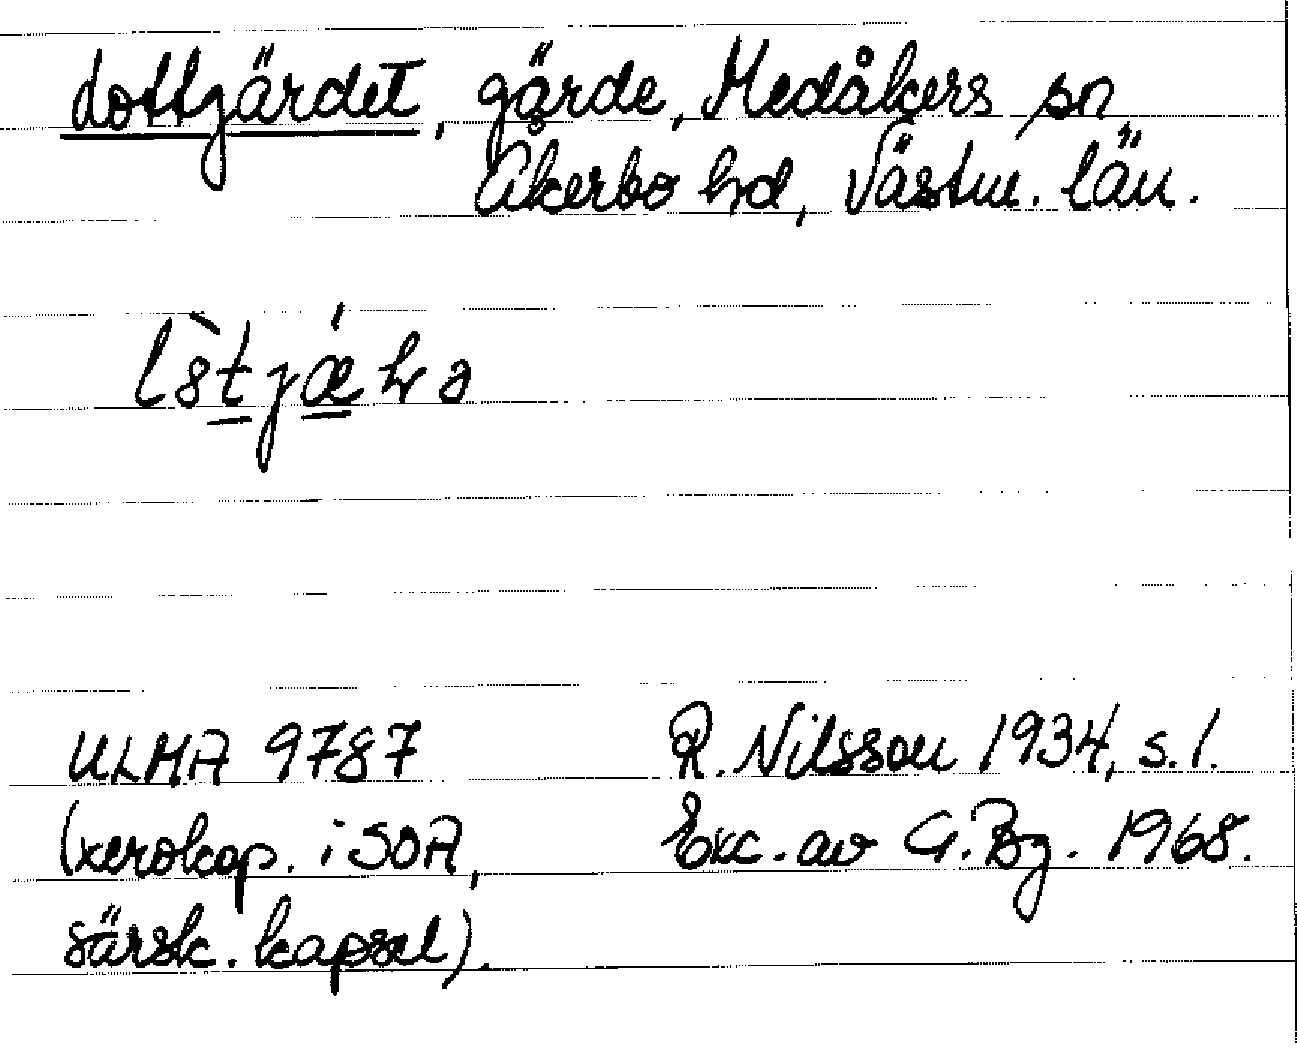 Lottgärdet, gärde, Medåkers sn
Åkerbo hd, Västm. län.
ULMA 9787 R. Nilsson 1934, s. 1.
(xerokop. i SOA, Exc. av G. Bg. 1968.
särsk. kapsel).